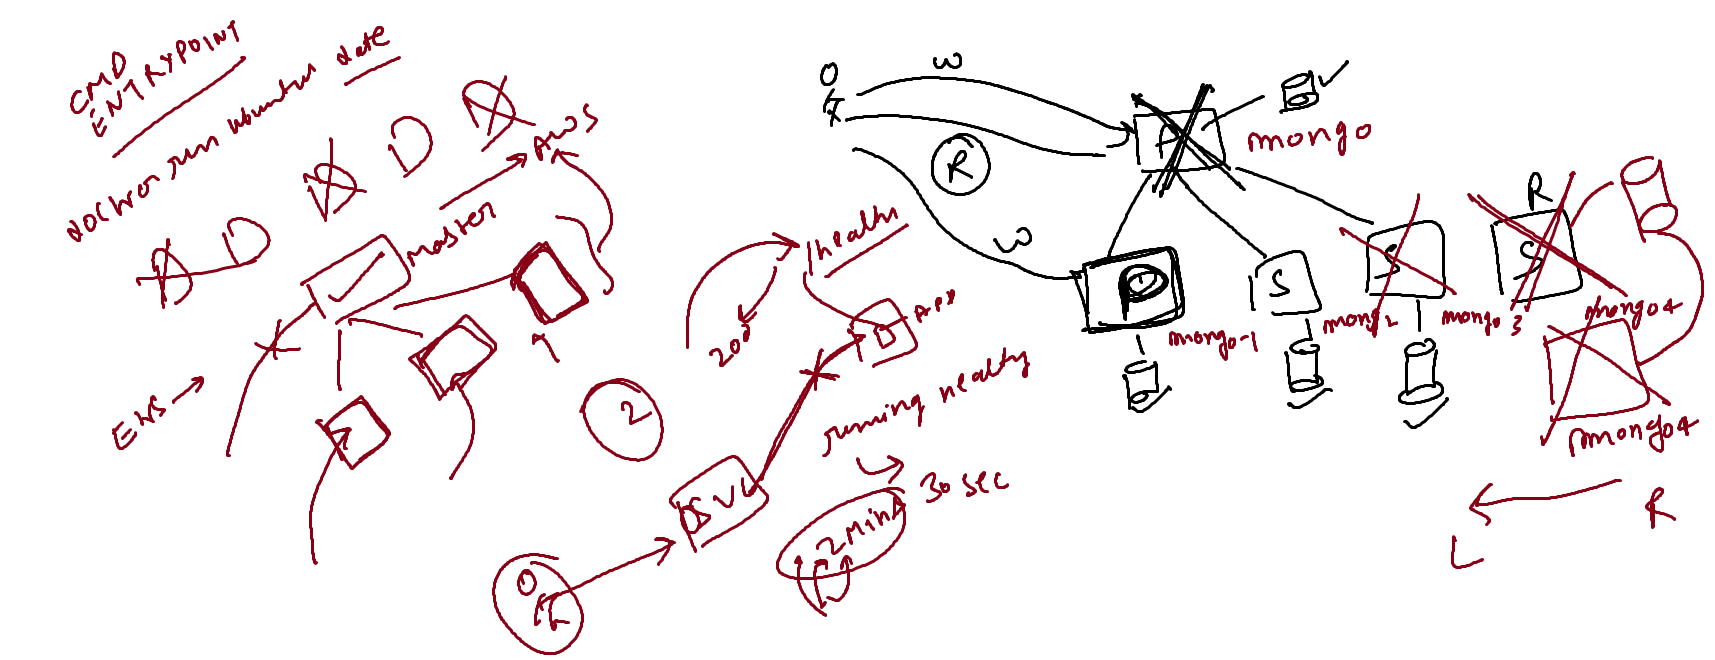 CMD
ENTRYPOINT
docker run ubuntu date
D D D D D
AWS
Master
EKS
/health
200
D
APP
running healty
30 sec
2 Min
2
SVC
W
R
W
P
mongo
P
mongo-1
S
mongo 2
S
mongo 3
R
S
mongo4
mongo4
R
L